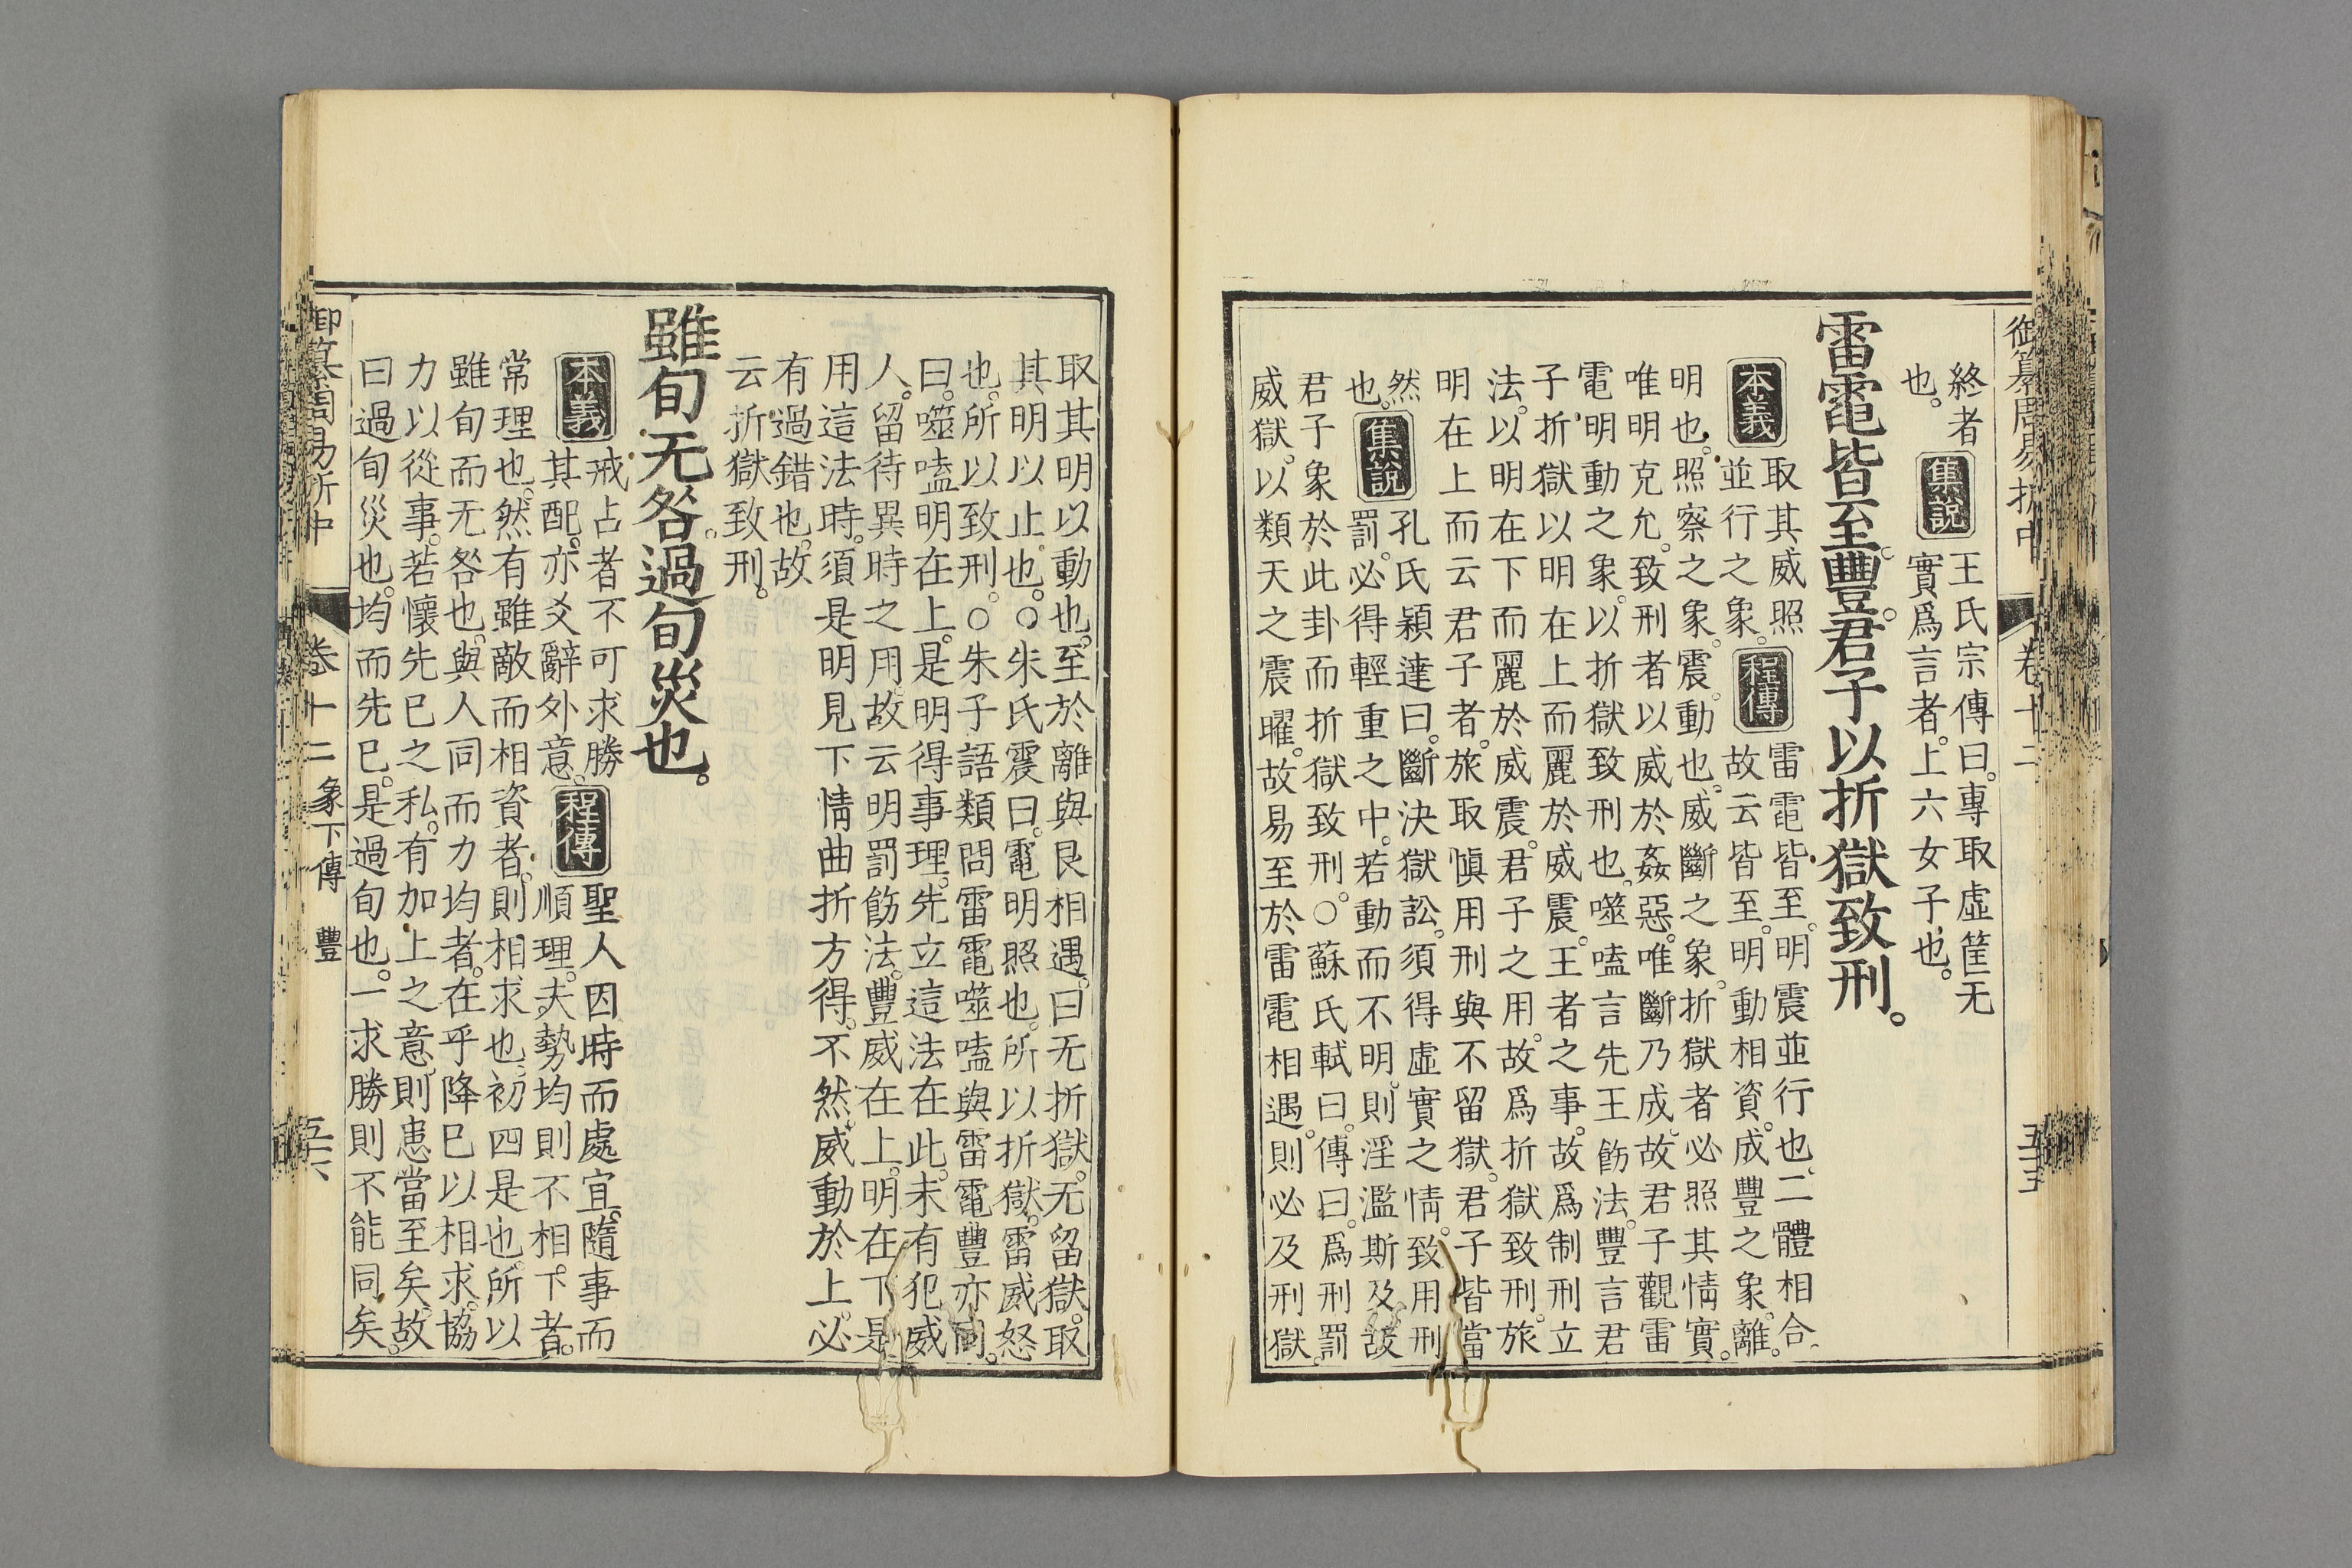 御纂周易折中 卷十二 五十五
終者
也。
集說
王氏宗傳曰。專取虛筐无
實爲言者。上六女子也。
雷電皆至豐。君子以折獄致刑。
本義
取其威照
並行之象。
程傳
雷電皆至。明震並行也。二體相合。
故云皆至。明動相資。成豐之象。離。
明也。照察之象。震。動也。威斷之象。折獄者必照其情實。
唯明克允。致刑者以威於姦惡。唯斷乃成。故君子觀雷
電明動之象。以折獄致刑也。噬嗑言先王飭法。豐言君
子折獄。以明在上而麗於威震。王者之事。故爲制刑立
法。以明在下而麗於威震。君子之用。故爲折獄致刑。旅
明在上而云君子者。旅取愼用刑與不留獄。君子皆當
然
也。
集說
孔氏穎達曰。斷決獄訟。須得虛實之情。致用刑
罰。必得輕重之中。若動而不明。則淫濫斯及。故
君子象於此卦而折獄致刑。○蘇氏軾曰。傳曰。爲刑罰
威獄。以類天之震曜。故易至於雷電相遇。則必及刑獄。
取其明以動也。至於離與艮相遇。曰无折獄。无留獄。取
其明以止也。○朱氏震曰。電明照也。所以折獄。雷威怒
也。所以致刑。○朱子語類問雷電噬嗑與雷電豐亦同。
曰。噬嗑明在上。是明得事理。先立這法在此。未有犯威
人。留待異時之用。故云明罰飭法。豐威在上。明在下。是
用這法時。須是明見下情曲折方得。不然。威動於上。必
有過錯也。故
云折獄致刑。
雖旬无咎。過旬災也。
本義
戒占者不可求勝
其配。亦爻辭外意。
程傳
聖人因時而處宜。隨事而
順理。夫勢均則不相下者。
常理也。然有雖敵而相資者。則相求也。初四是也。所以
雖旬而无咎也。與人同而力均者。在乎降巳以相求。協
力以從事。若懷先巳之私。有加上之意。則患當至矣。故
曰過旬災也。均而先巳。是過旬也。一求勝則不能同矣。
御纂周易折中 卷十二 象下傳 豐 五十六